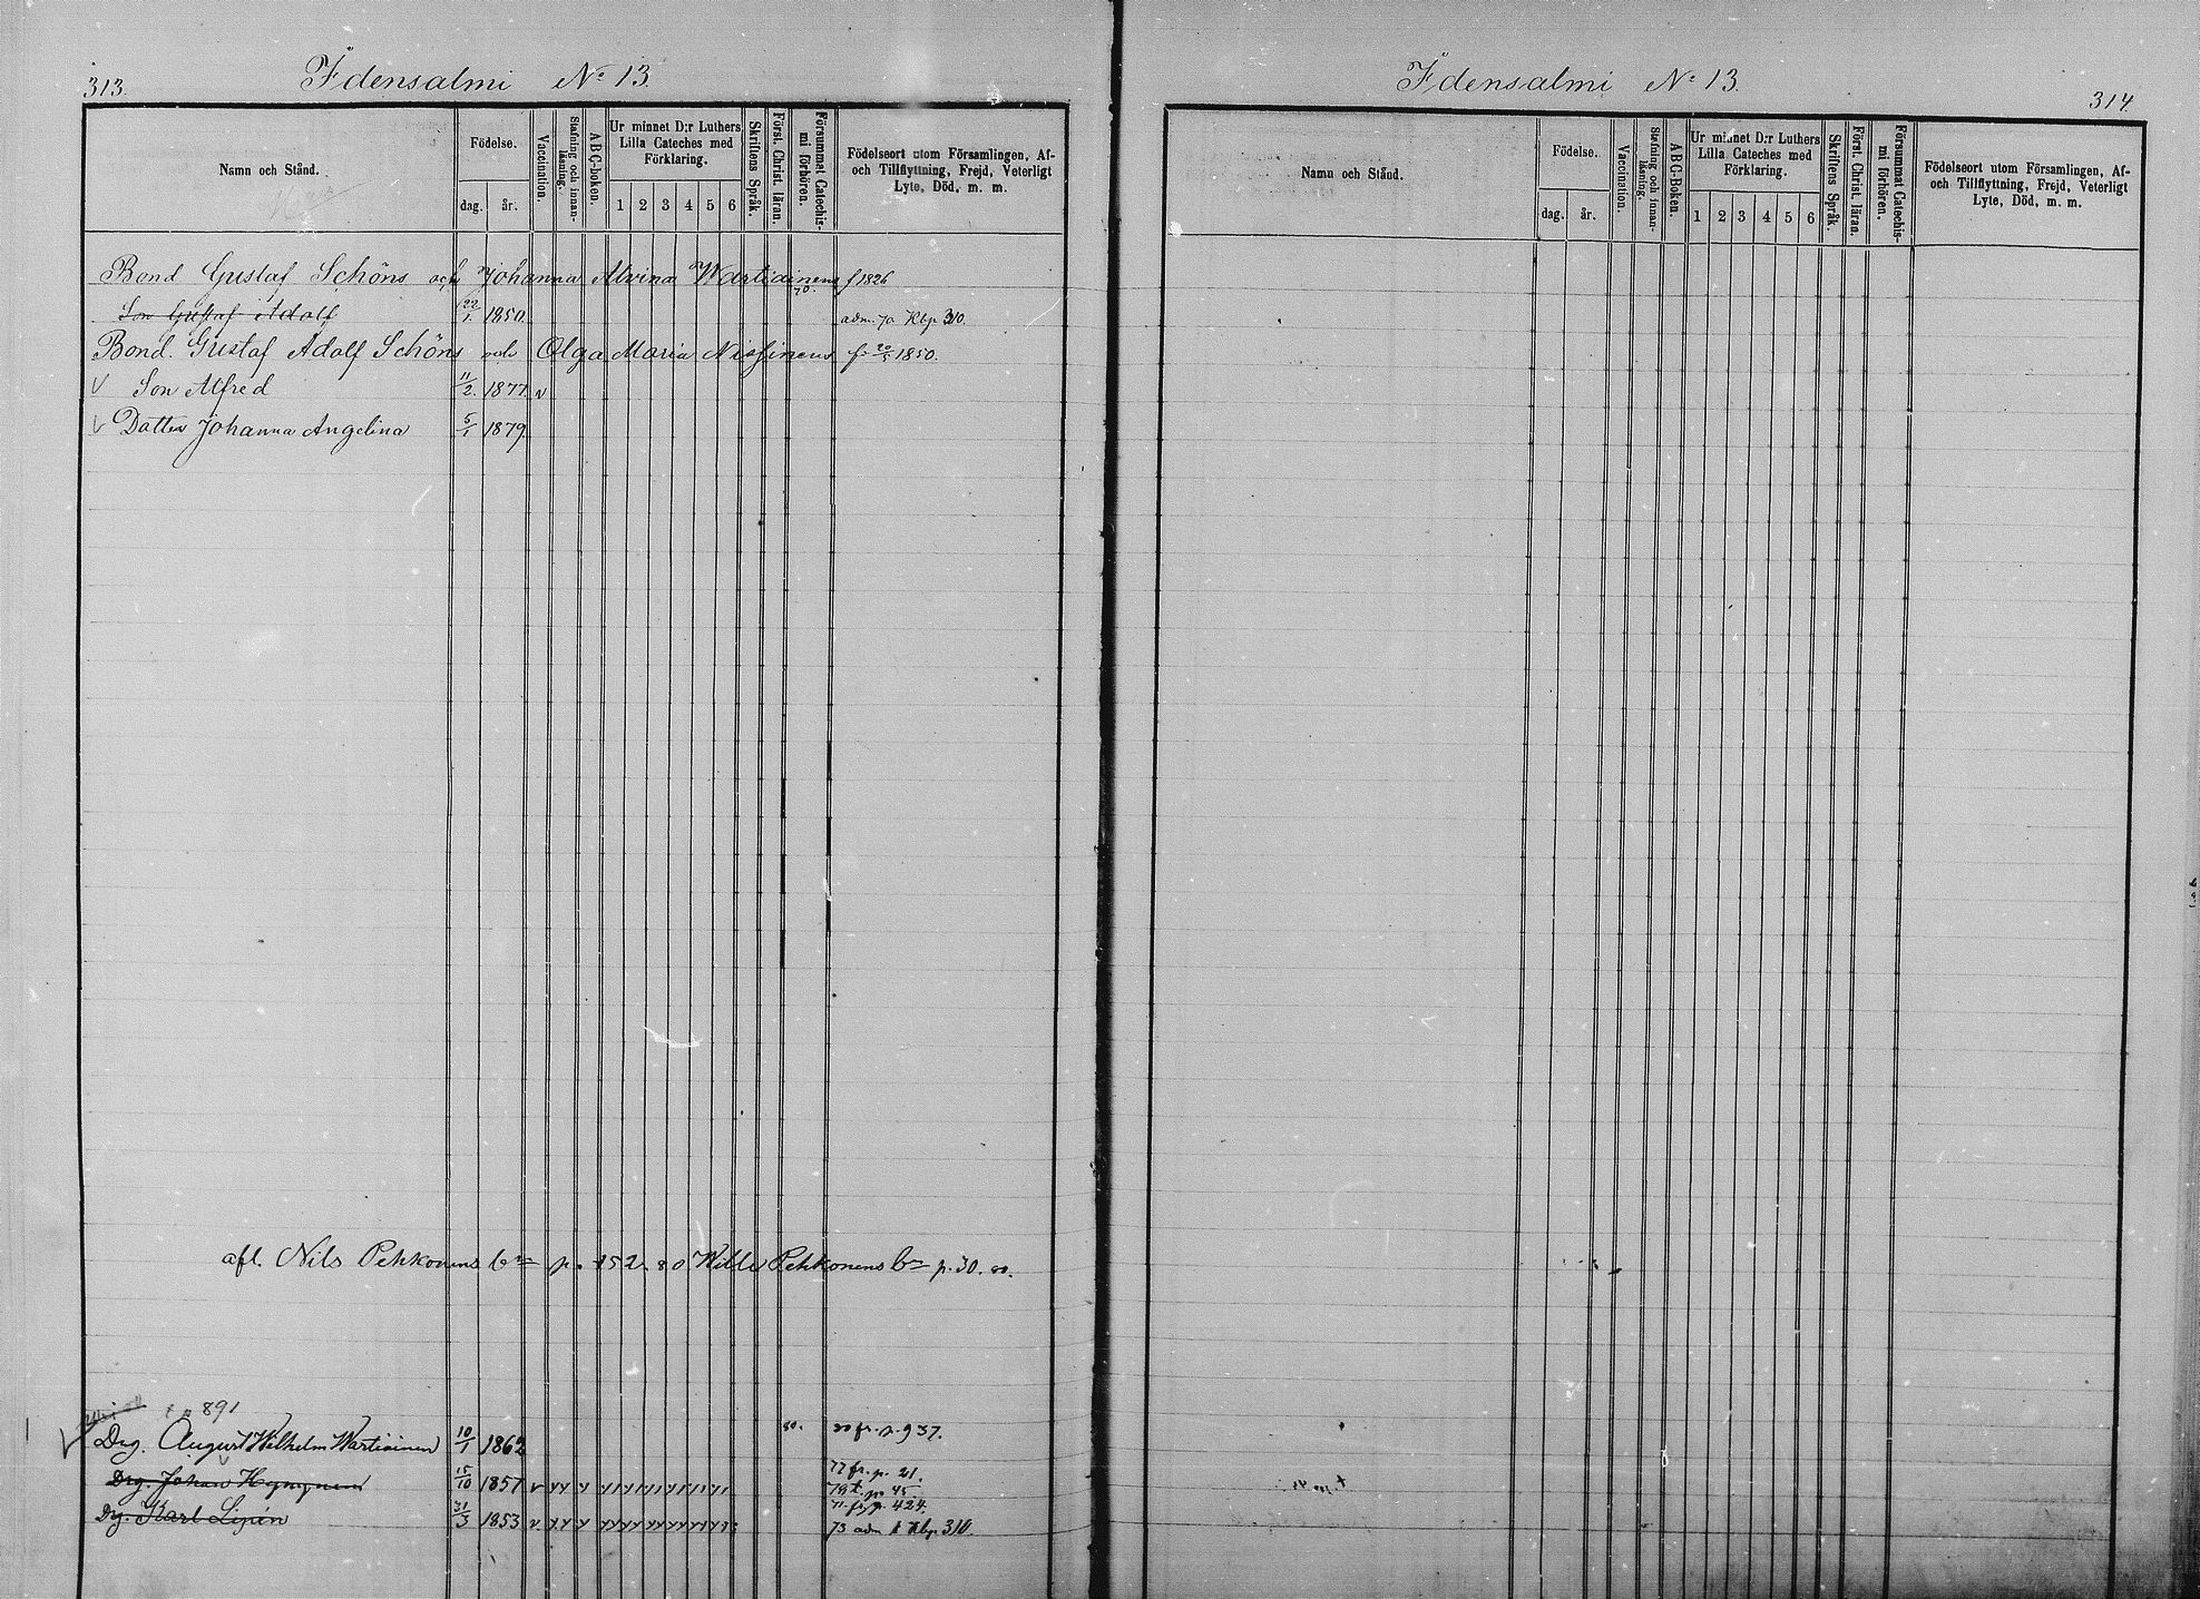 313.
Idensalmi No 13.
Namn och Stånd.
Födelse.
dag. år.
Vaccination.
Stafning och innan-läsning.
ABC-boken.
Ur minnet D:r Luthers
Lilla Cateches med
Förklaring.
1 2 3 4 5 6
Skriftens Språk.
Först. Christ. läran.
Försummat Catechis-
mi förhören.
Födelseort utom Församlingen, Af-
och Tillflyttning, Frejd, Veterligt
Lyte, Död, m. m.
Bond Gustaf Schöns och Johanna Alvina Wartiainens f 1826
70.
Son Gustaf Adolf 22/1. 1850. adm. 70 Kbp 310.
Bond. Gustaf Adolf Schöns och Olga Maria Nissinens f. 20/5 1850.
v Son Alfred 11/2. 1877. v
v Dotter Johanna Angelina 5/1 1879.
afl. Nils Pekkonens bn p. 152. 80 Wille Pekkonens bn p. 30. 80.
891
v Drg. August Wilhelm Wartiainen 10/1 1862 80. 80 fr. p. 937.
Drg. Johan Hyvönen 15/10 1857 v 77 fr. p. 21.
78 t. p. 45.
Drg. Karl Lipén 31/3 1853 v. 71. fr. p. 424.
73 adm t Kbp 310.
Idensalmi No 13.
314.
Namn och Stånd.
Födelse.
dag. år.
Vaccination.
Stafning och innan-läsning.
ABC-Boken.
Ur minnet D:r Luthers
Lilla Cateches med
Förklaring.
1 2 3 4 5 6
Skriftens Språk.
Först. Christ. läran.
Försummat Catechis-
mi förhören.
Födelseort utom Församlingen, Af-
och Tillflyttning, Frejd, Veterligt
Lyte, Död, m. m.